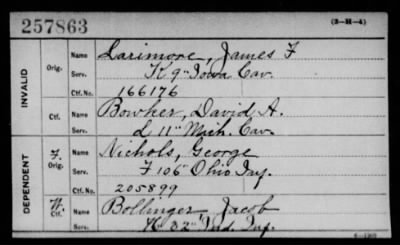 257863
(3-M-4)
INVALID
Orig.
Name Larimore, James F
Serv. K 9" Iowa Cav.
Ctf. No. 166176
Ctf.
Name Bowker, David A.
Serv. L 11" Mich. Cav.
DEPENDENT
F. Orig.
Name Nichols, George
Serv. F 106" Ohio Inf.
Ctf. No. 205899
W. Ctf.
Name Bollinger, Jacob
Serv. K 32" Ind. Inf.